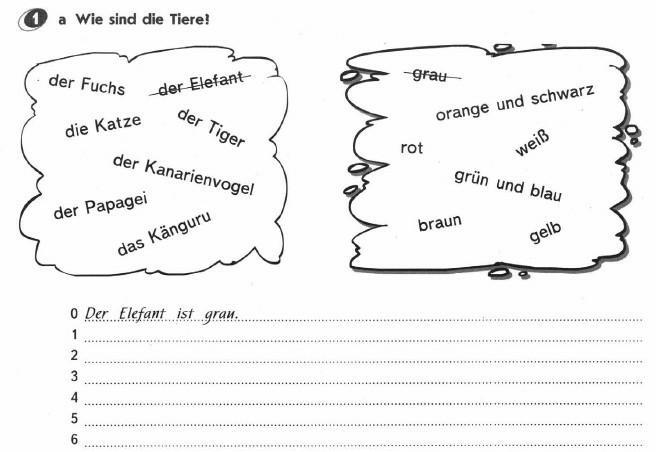 1 a Wie sind die Tiere!
der Fuchs
der Elefant
die Katze
der Tiger
der Kanarienvogel
der Papagei
das Känguru
grau
orange und schwarz
rot
weiß
grün und blau
braun
gelb
0 Der Elefant ist grau.
1
2
3
4
5
6